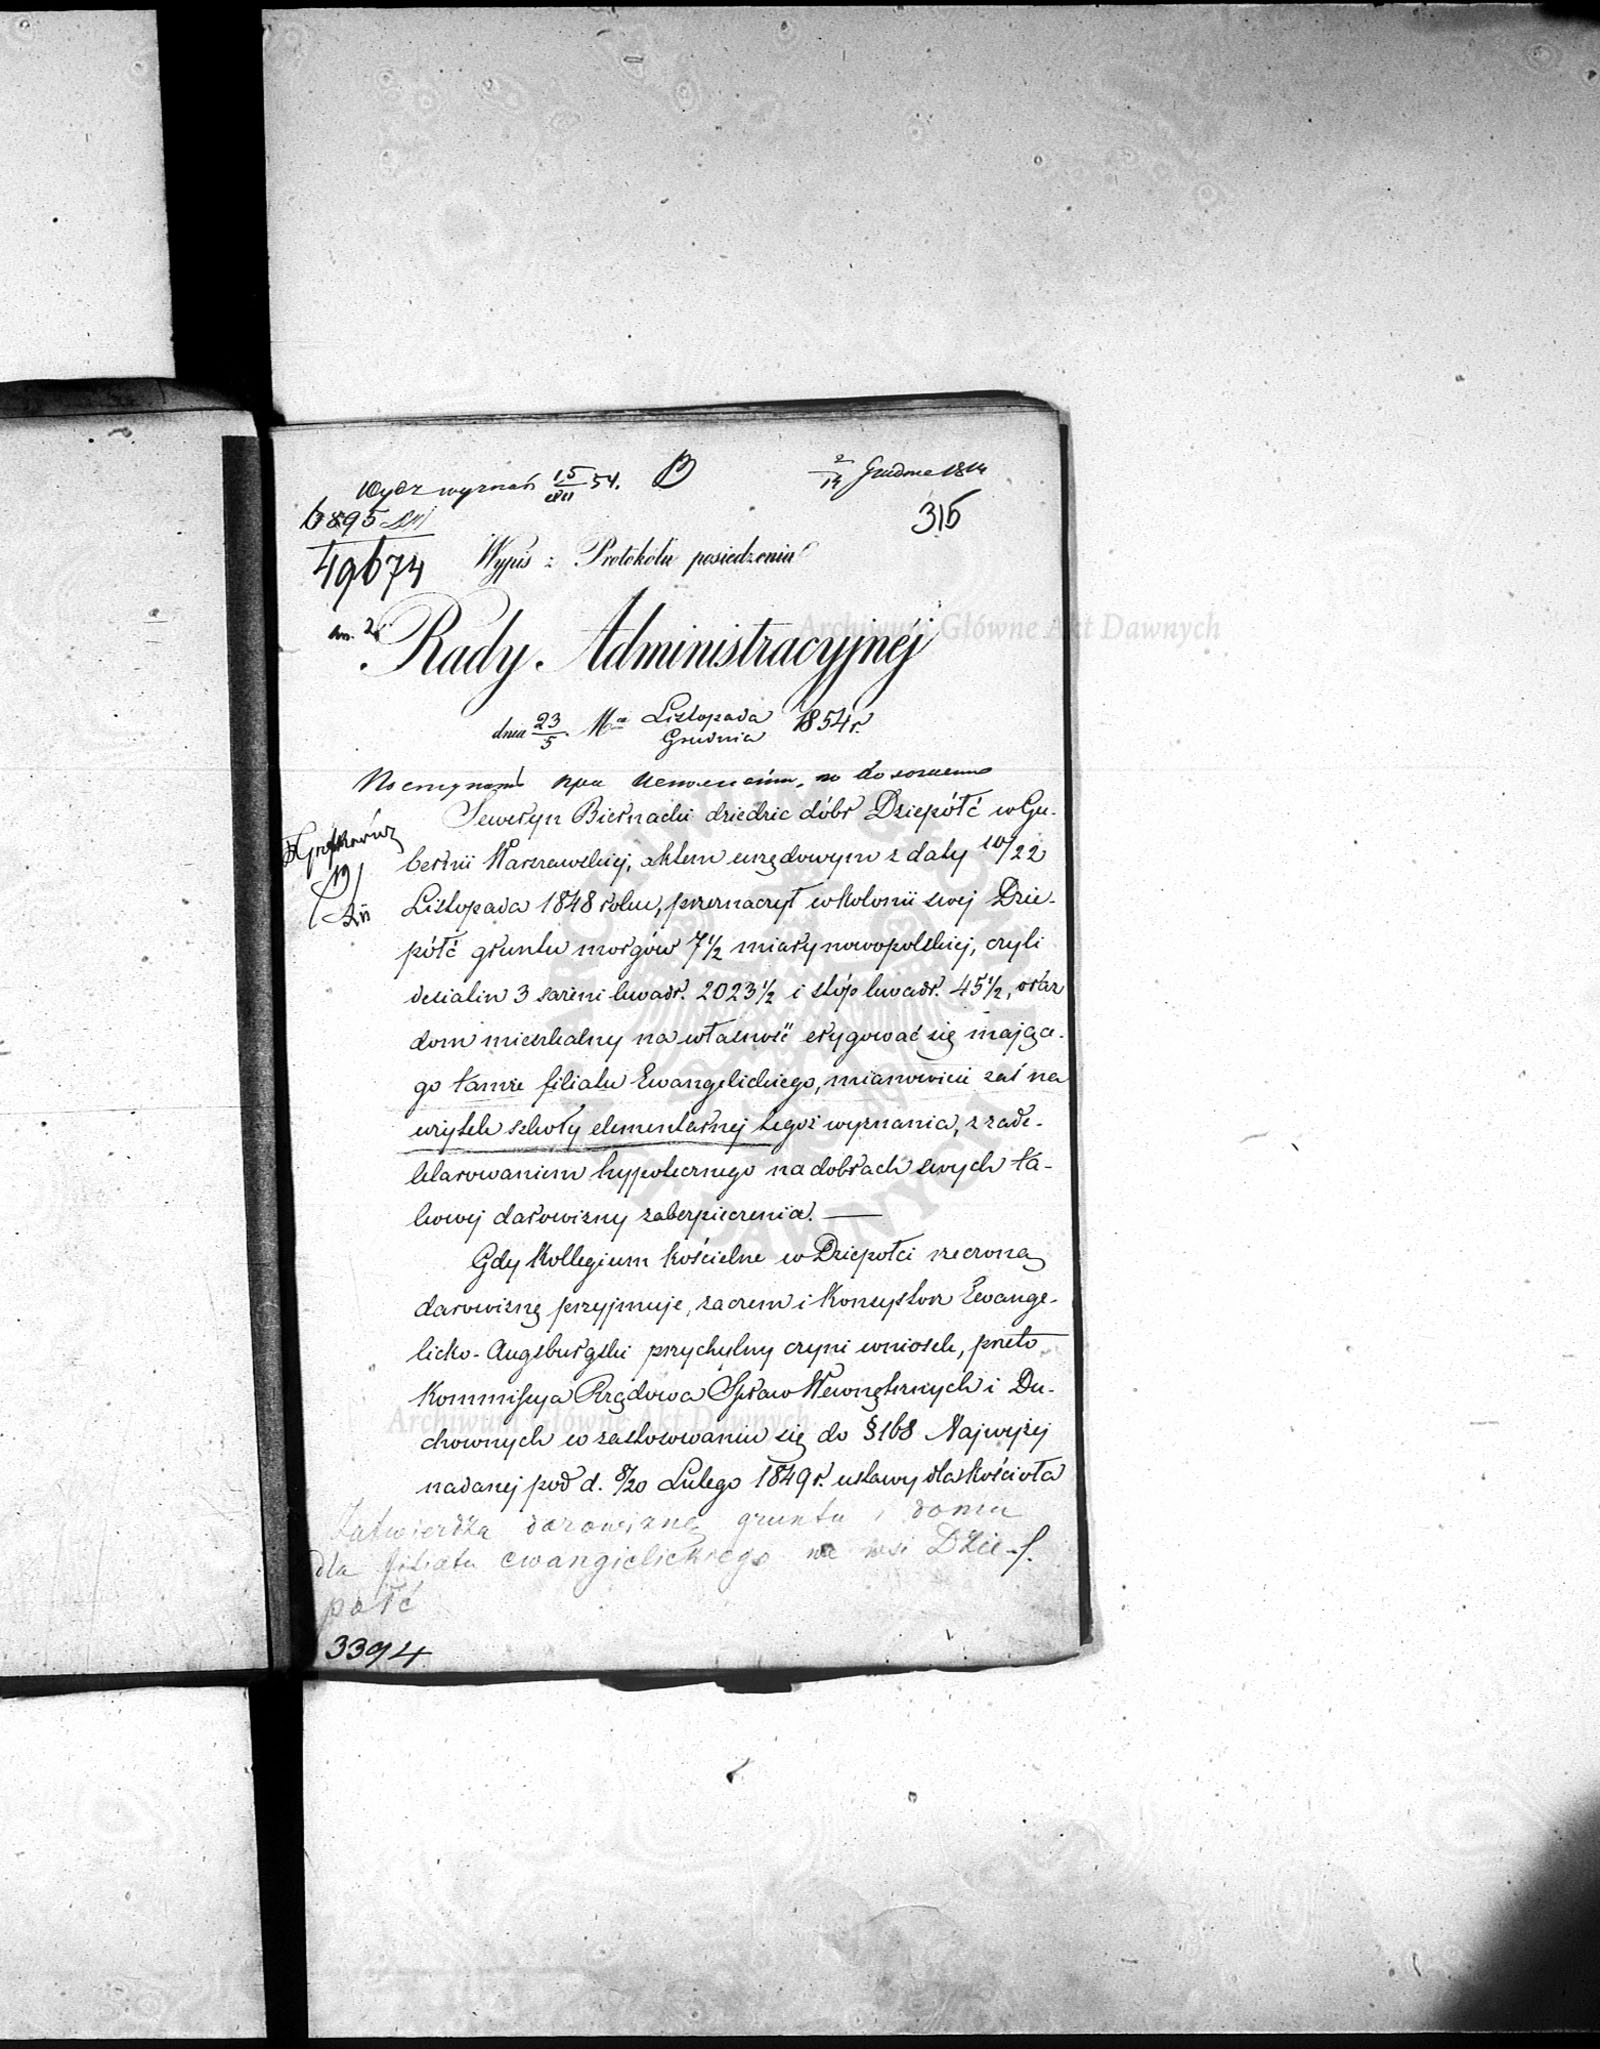 Wydz wyznań 15/XII 54.
2/14 Grudnia 1854
316
6895
49674
Wypis z Protokółu posiedzenia
Rady Administracyjnéj
dnia 23/5 Mca Listopada/Grudnia 1854 r.
Seweryn Biernacki dziedzic dóbr Dziepółć w Gu-
bernii Warszawskiej, aktem urzędowym z daty 10/22
Listopada 1848 roku, przeznaczył w kolonii swej Dzie-
półć gruntu morgów 7 1/2 miary nowopolskiej, czyli
desiatin 3 sażeni kwadr. 2023 1/2 i stóp kwadr. 45 1/2, oraz
dom mieszkalny na własność erygować się mające-
go tamże filiału Ewangelickiego, mianowicie zaś na
użytek szkoły elementarnej tegoż wyznania, z zade-
klarowaniem hyppotecznego na dobrach swych ta-
kowej darowizny zabezpieczenia. —
Gdy Kollegium kościelne w Dziepółci rzeczoną
darowiznę przyjmuje, zaczem i Konsystorz Ewange-
licko-Augsburgski przychylny czyni wniosek, przeto
Kommissya Rządowa Spraw Wewnętrznych i Du-
chownych w zastosowaniu się do § 168 Najwyżej
nadanej pod d. 8/20 Lutego 1849 r. ustawy dla kościoła
Zatwierdza darowiznę gruntu i domu
dla filiału ewangielickiego we wsi Dzie-
półć
3394
Archiwum Główne Akt Dawnych
Archiwum Główne Akt Dawnych